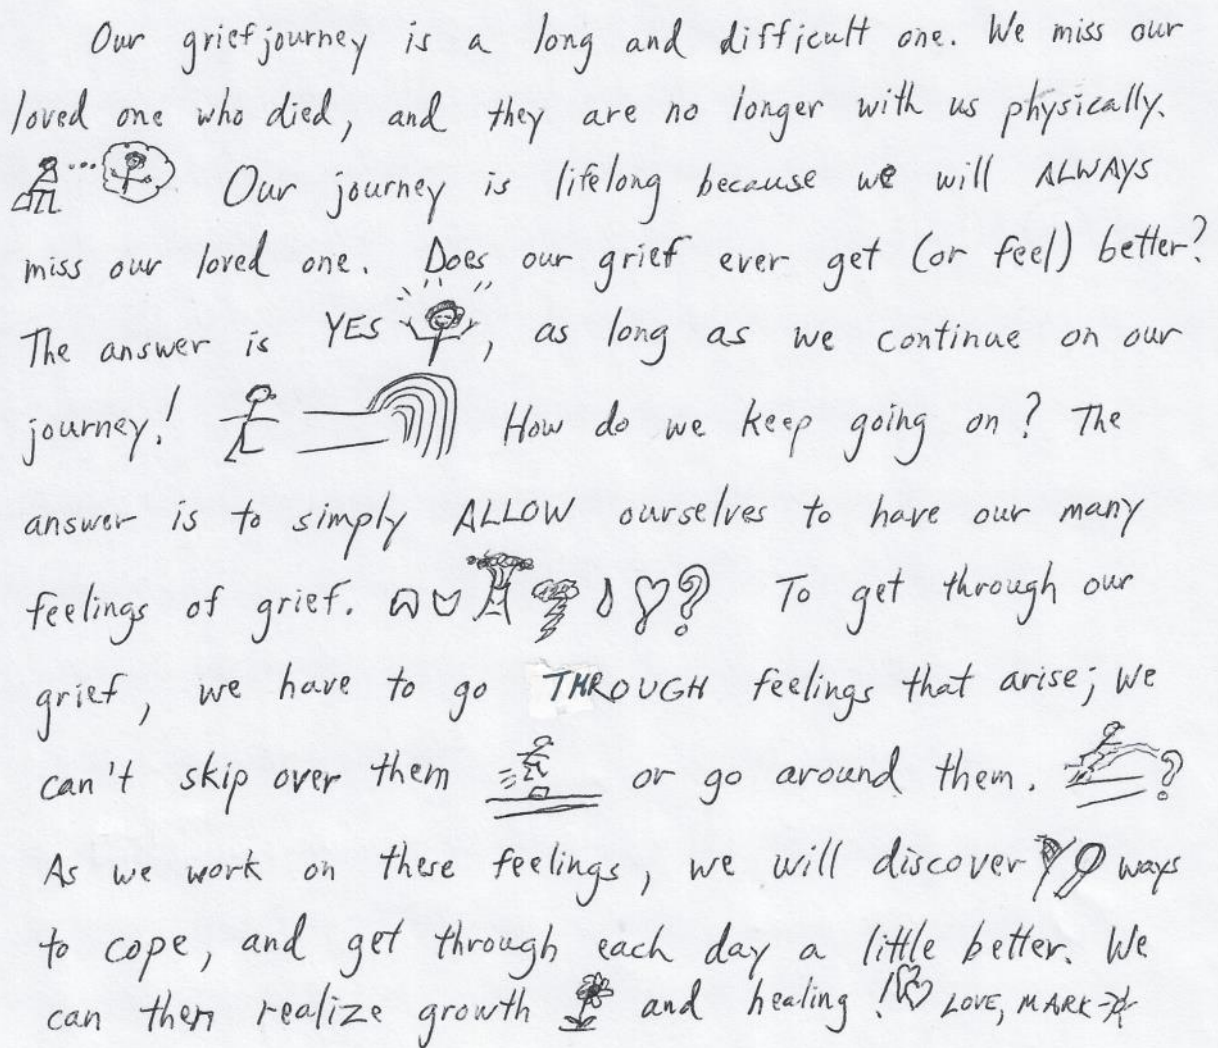 Our grief journey is a long and difficult one. We miss our
loved one who died, and they are no longer with us physically.
Our journey is lifelong because we will ALWAYS
miss our loved one. Does our grief ever get (or feel) better?
The answer is YES, as long as we continue on our
journey! How do we keep going on? The
answer is to simply ALLOW ourselves to have our many
feelings of grief. ? To get through our
grief, we have to go THROUGH feelings that arise; we
can't skip over them or go around them. ?
As we work on these feelings, we will discover ways
to cope, and get through each day a little better. We
can then realize growth and healing! LOVE, MARK